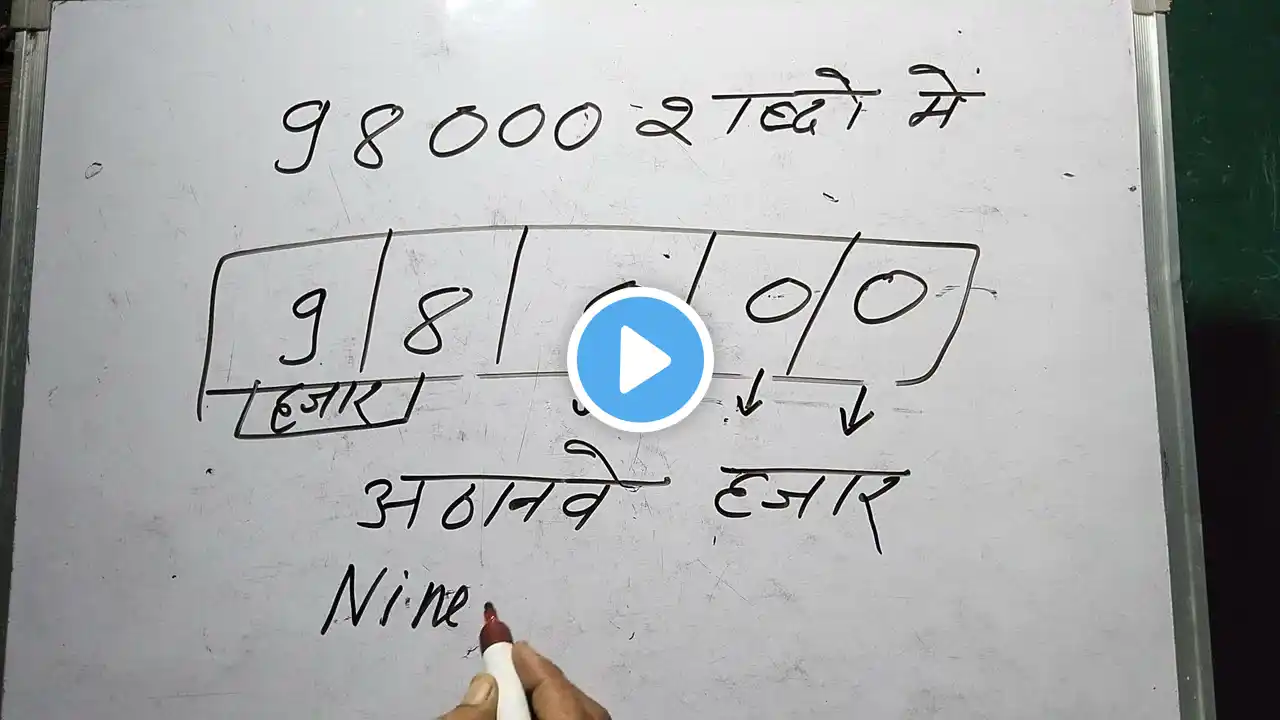 98000 शब्दो में
9 8 0 0
हजार
अठानवे हजार
Nine